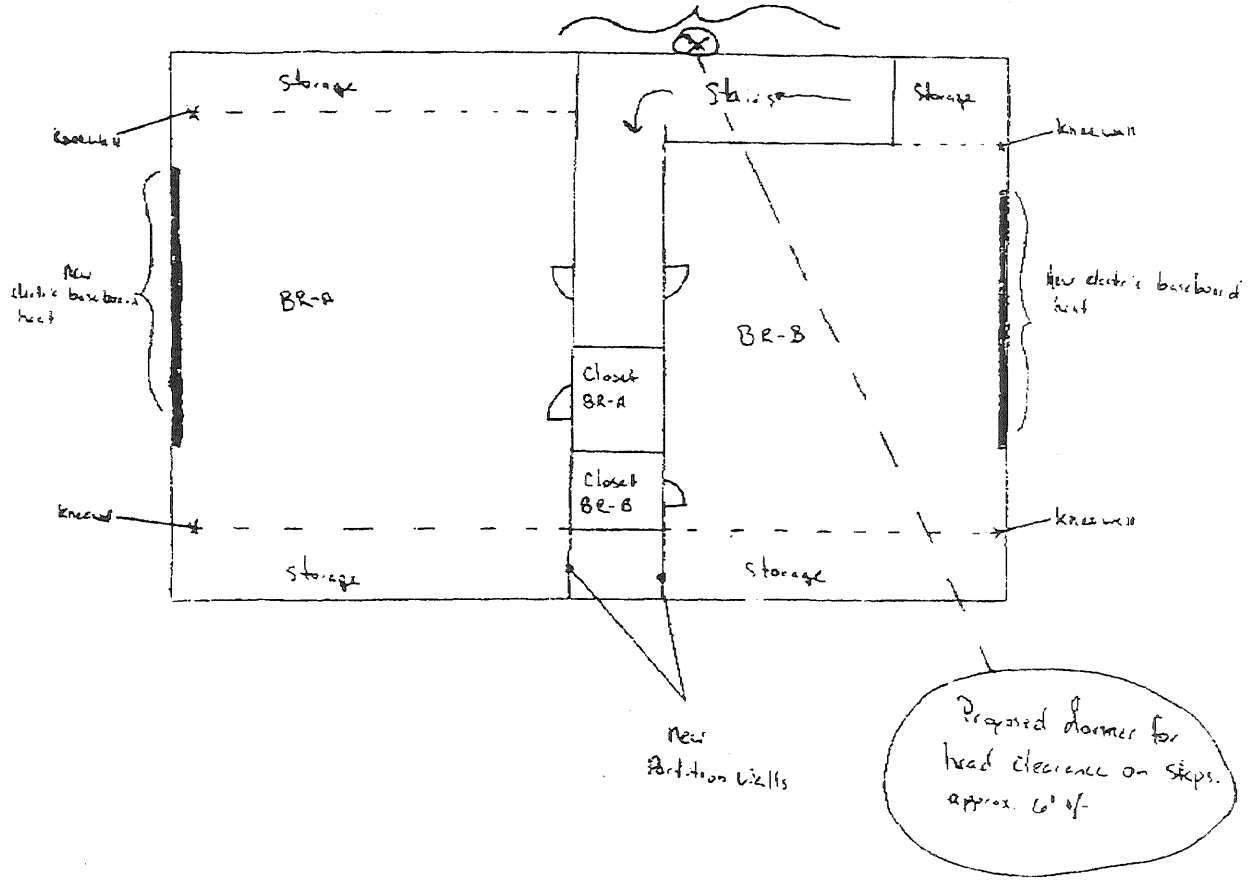 Storage
Stairs
Storage
Kneewall
Kneewall
New
electric baseboard
heat
BR-A
BR-B
New electric baseboard
heat
Closet
BR-A
Closet
BR-B
Kneewall
Kneewall
Storage
Storage
New
Partition Walls
Proposed dormer for
head clearance on steps.
approx. 6' +/-